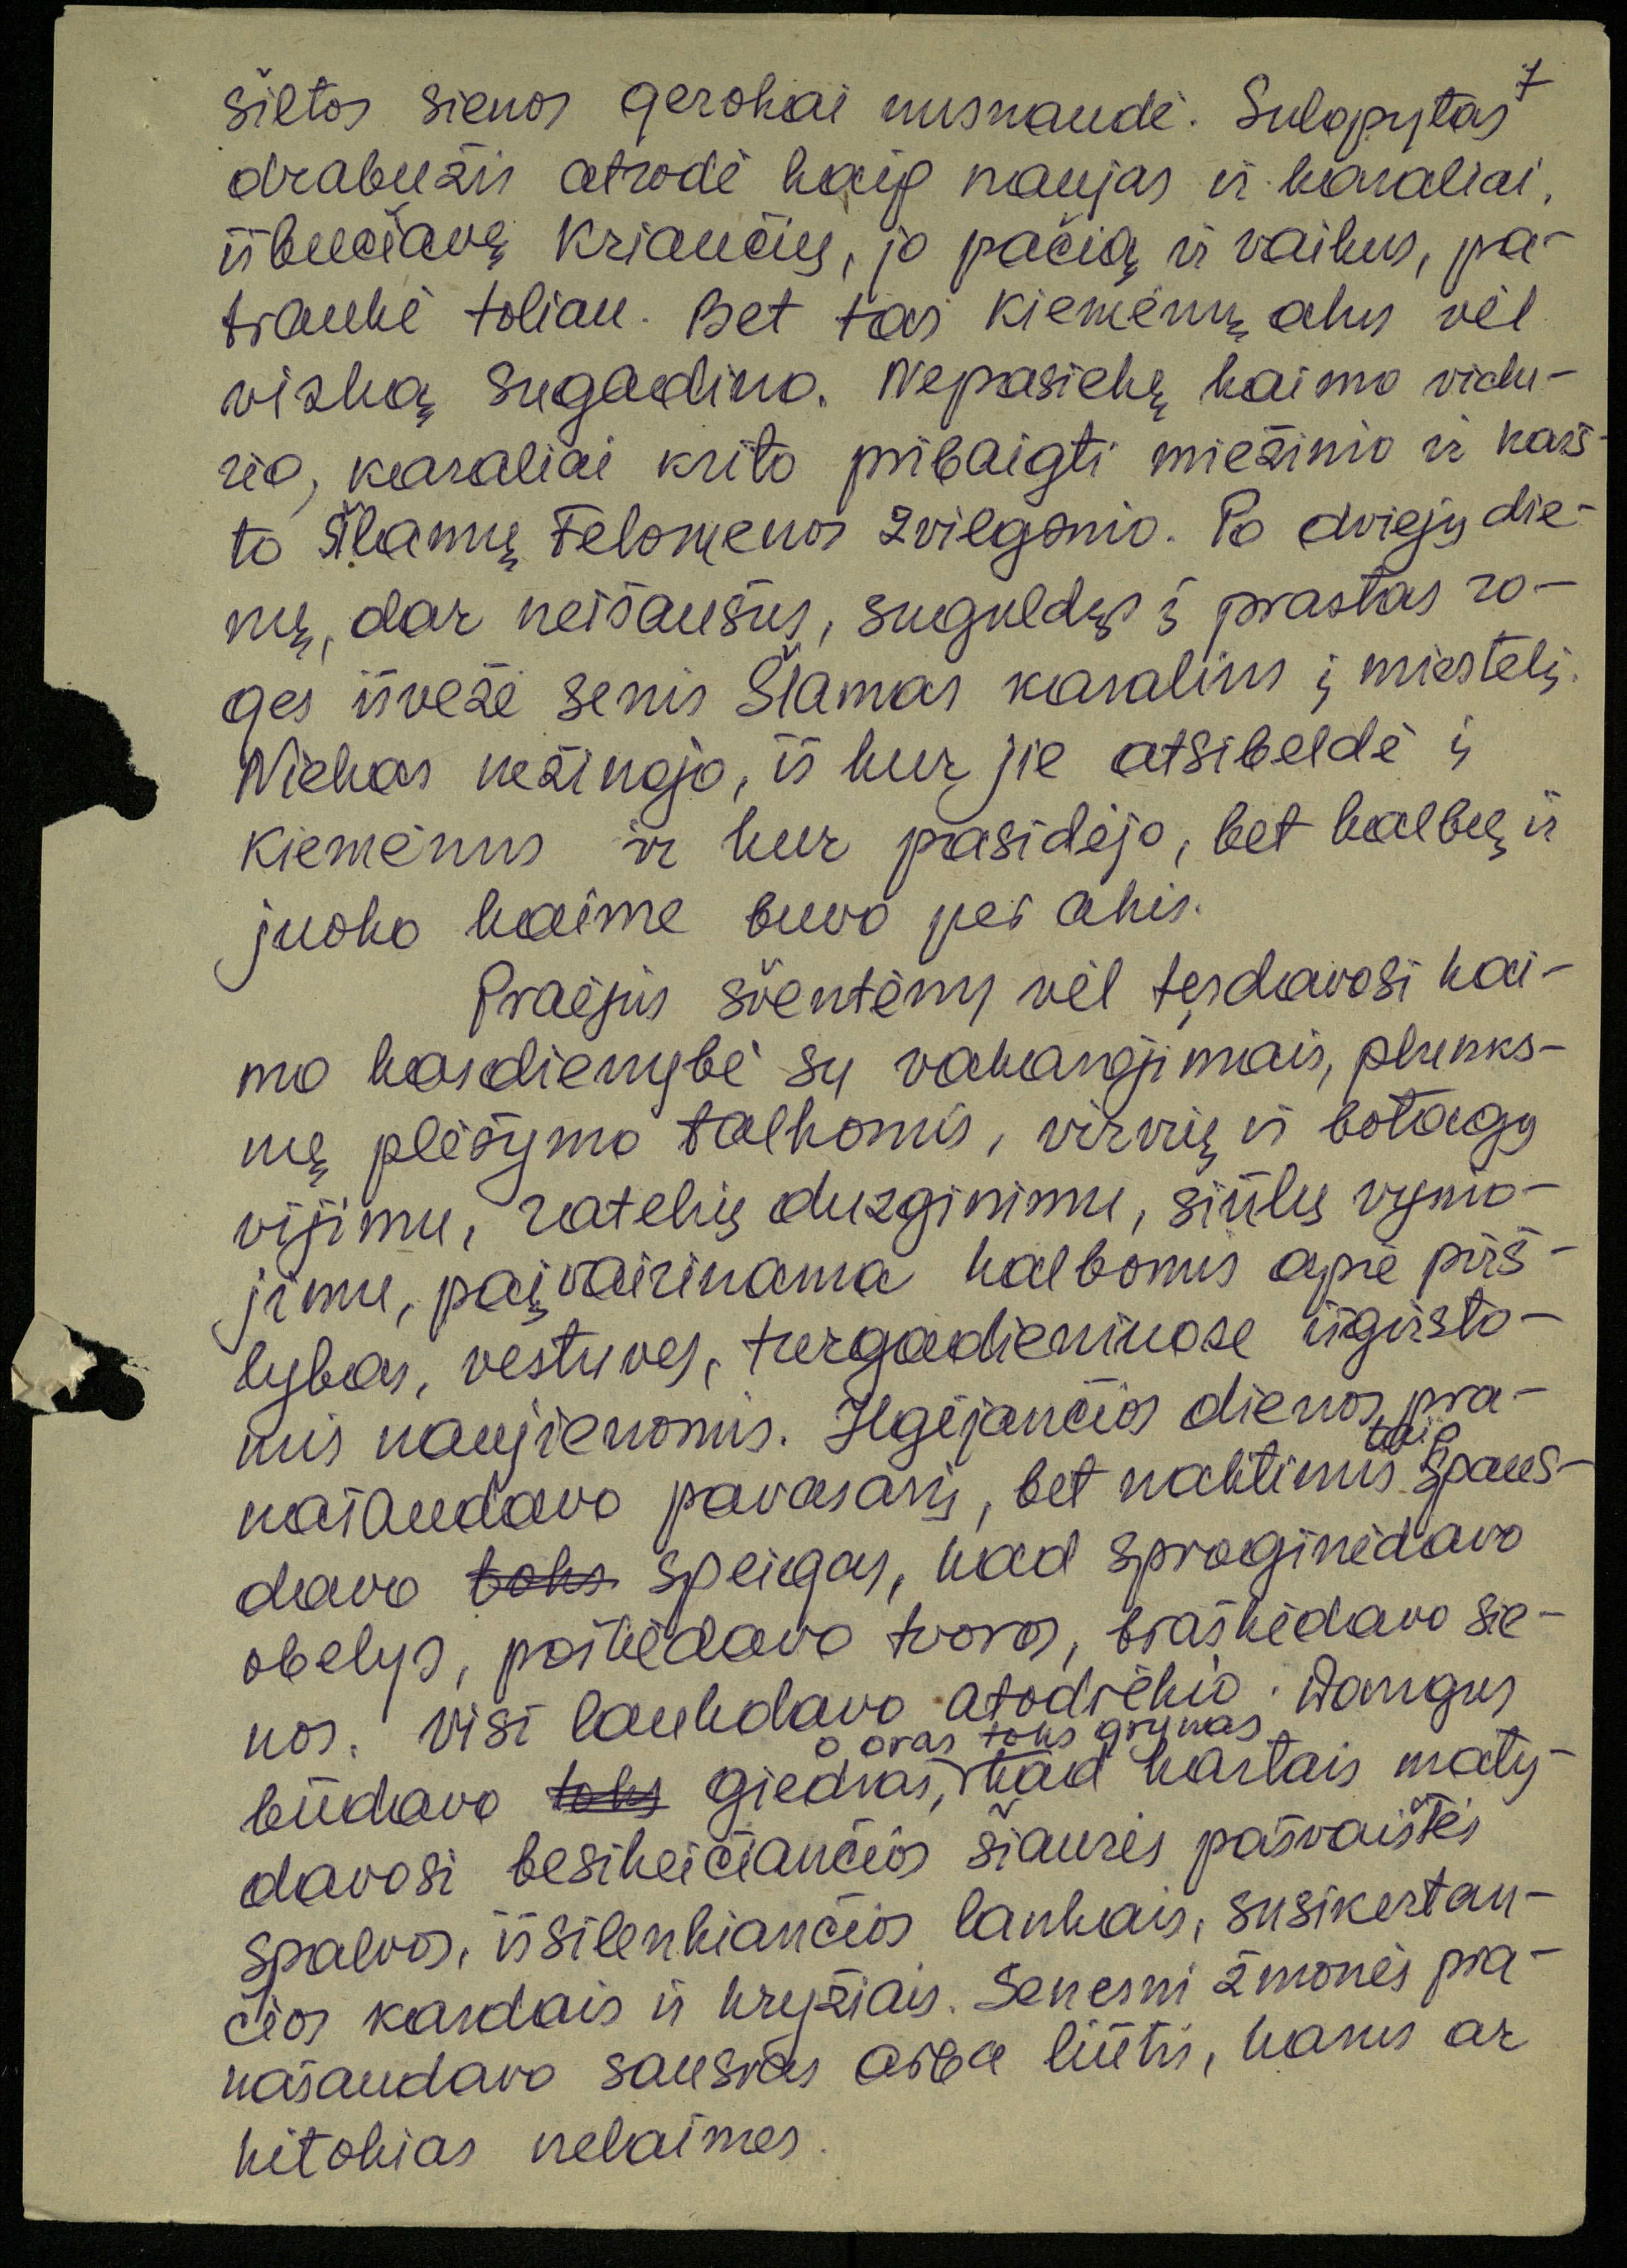 7
šiltos sienos gerokai nusnaudė. Sulopytas
drabužis atrodė kaip naujas ir karaliai,
išbučiavę kriaučių, jo pačią ir vaikus, pa-
traukė toliau. Bet tas Kiemėnų alus vėl
viską sugadino. Nepasiekę kaimo vidu-
rio, karaliai krito pribaigti miežinio ir karš-
to Šlamų Felomenos žvilgsnio. Po dviejų die-
nų, dar neišaušus, suguldęs į prastas ro-
ges išvežė senis Šlamas karalius į miestelį.
Niekas nežinojo, iš kur jie atsibeldė į
Kiemėnus ir kur prasidėjo, bet kalbų ir
juoko kaime buvo per akis.
Praėjus šventėms vėl tęsdavosi kai-
mo kasdienybė su vakarojimais, plunks-
nų plėšymo talkomis, virvių ir botagų
vijimu, ratelių duzginimu, siūlų vynio-
jimu, paįvairinama kalbomis apie pirš-
lybas, vestuves, turgadieniuose išgirsto-
mis naujienomis. Ilgėjančios dienos pra-
našaudavo pavasarį, bet naktimis taip spaus-
davo toks speigas, kad sproginėdavo
obelys, poškėdavo tvoros, braškėdavo sie-
nos. Visi laukdavo atodrėkio. Dangus
būdavo toks giedras, o oras toks grynas, kad kartais maty-
davosi besikeičiančios šiaurės pašvaistės
spalvos, išsilenkiančios lankais, susikertan-
čios kardais ir kryžiais. Senesni žmonės pra-
našaudavo sausras arba liūtis, karus ar
kitokias nelaimes.